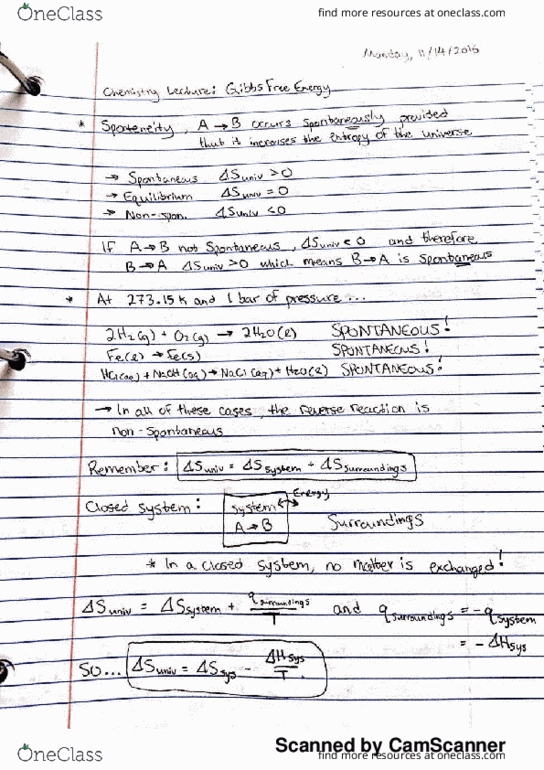 OneClass find more resources at oneclass.com
Monday, 11/14/2016
Chemistry Lecture: Gibbs Free Energy
* Sponteneity, A → B occurs spontaneously provided
that it increases the entropy of the universe
→ Spontaneous ΔSuniv > 0
→ Equilibrium ΔSuniv = 0
→ Non-spon. ΔSuniv < 0
If A → B not spontaneous, ΔSuniv < 0 and therefore
B → A ΔSuniv > 0 which means B → A is spontaneous
* At 273.15 K and 1 bar of pressure ...
2H₂(g) + O₂(g) → 2H₂O(l) SPONTANEOUS!
Fe(l) → Fe(s) SPONTANEOUS!
HCl(aq) + NaOH(aq) → NaCl(aq) + H₂O(l) SPONTANEOUS!
→ In all of these cases, the reverse reaction is
non-spontaneous
Remember: ΔSuniv = ΔSsystem + ΔSsurroundings
Closed system: system Energy
A → B Surroundings
* In a closed system, no matter is exchanged!
ΔSuniv = ΔSsystem + qsurroundings/T and qsurroundings = -qsystem
= -ΔHsys
So... ΔSuniv = ΔSsys - ΔHsys/T
Scanned by CamScanner
OneClass find more resources at oneclass.com